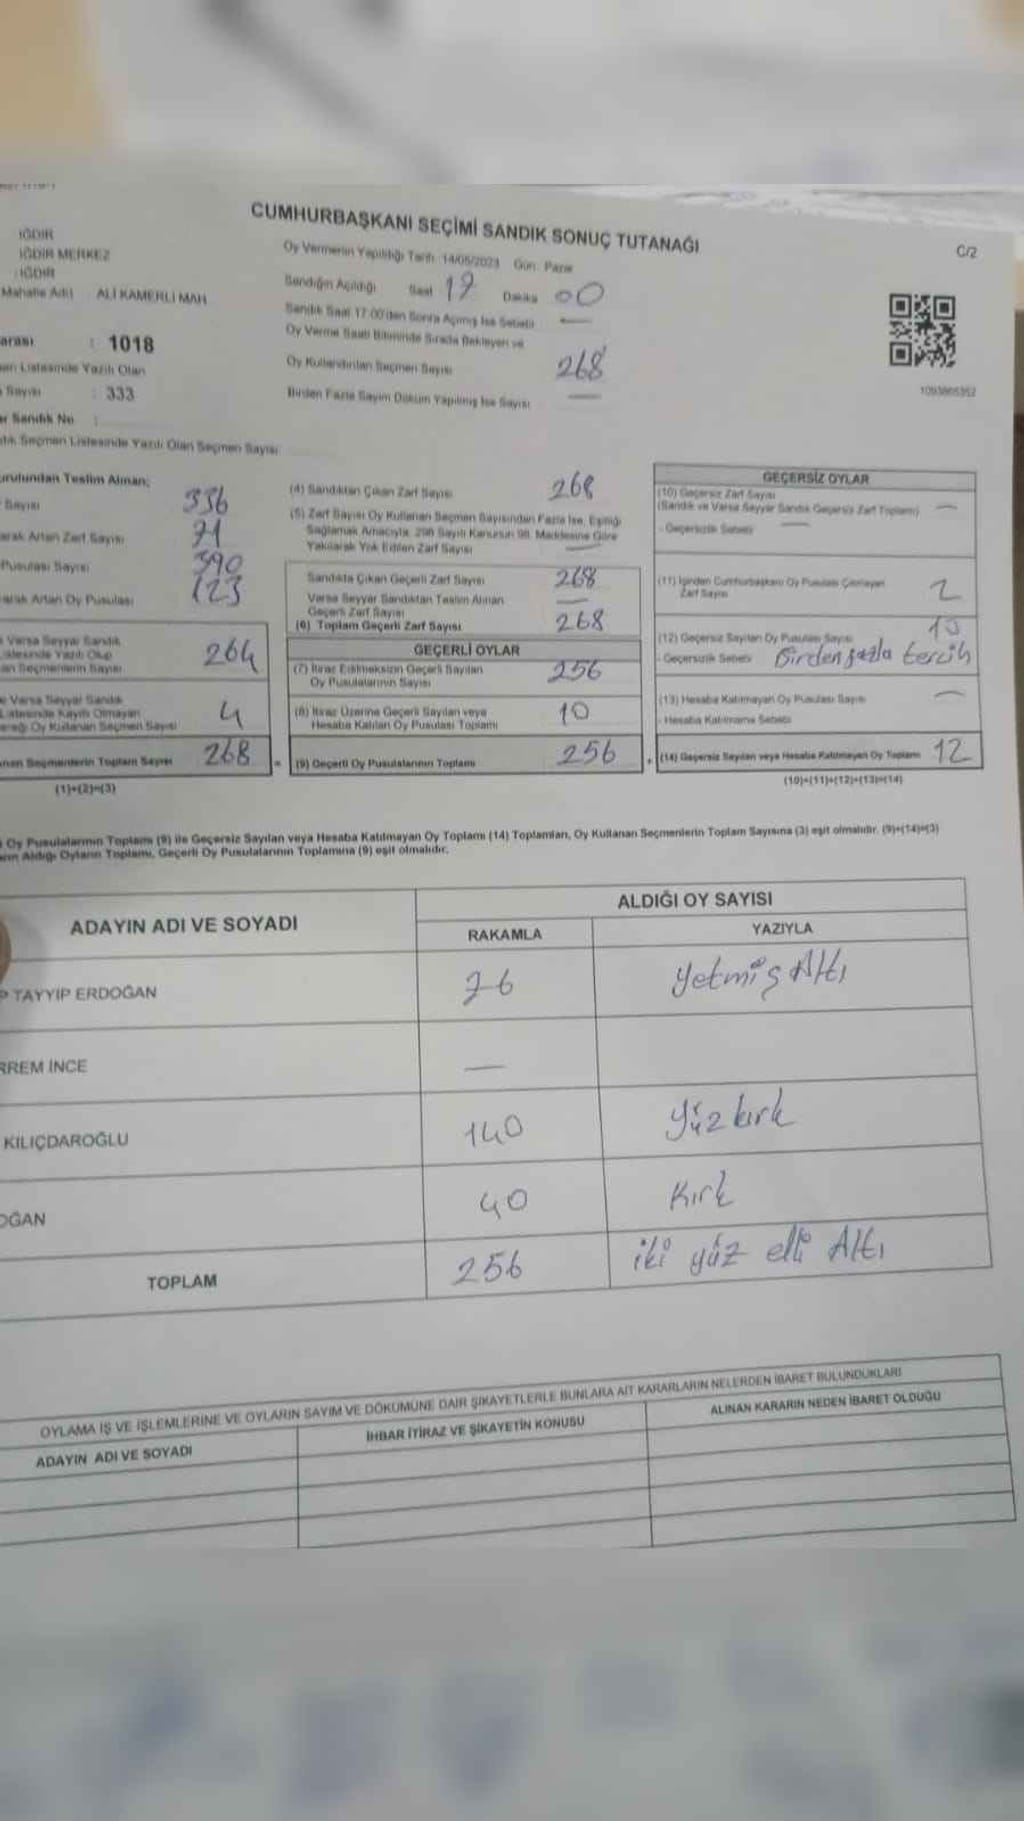 CUMHURBAŞKANI SEÇİMİ SANDIK SONUÇ TUTANAĞI
C/2
IĞDIR
IĞDIR MERKEZ
IĞDIR
Mahalle Adı ALİ KAMERLİ MAH
arası : 1018
Listesinde Yazılı Olan
Sayısı : 333
Sandık No :
Seçmen Listesinde Yazılı Olan Seçmen Sayısı
Oy Vermenin Yapıldığı Tarih 14/05/2023 Gün: Pazar
Sandığın Açıldığı Saat 17 Dakika 00
Sandık Saat 17:00'den Sonra Açılmış İse Sebebi —
Oy Verme Saati Bitiminde Sırada Bekleyen ve
Oy Kullandırılan Seçmen Sayısı 268
Birden Fazla Sayım Döküm Yapılmış İse Sayısı —
Teslim Alınan;
Sayısı 336
Artan Zarf Sayısı 71
Pusulası Sayısı 390
Artan Oy Pusulası 123
Varsa Seyyar Sandık
Listesinde Yazılı Olup
Seçmenlerin Sayısı 264
Varsa Seyyar Sandık
Listesinde Kayıtlı Olmayan
Oy Kullanan Seçmen Sayısı 4
Seçmenlerin Toplam Sayısı 268
(1)+(2)=(3)
(4) Sandıktan Çıkan Zarf Sayısı 268
(5) Zarf Sayısı Oy Kullanan Seçmen Sayısından Fazla İse, Eşitliği
Sağlamak Amacıyla, 298 Sayılı Kanunun 98. Maddesine Göre
Yakılarak Yok Edilen Zarf Sayısı —
Sandıkta Çıkan Geçerli Zarf Sayısı 268
Varsa Seyyar Sandıktan Teslim Alınan
Geçerli Zarf Sayısı —
(6) Toplam Geçerli Zarf Sayısı 268
GEÇERLİ OYLAR
(7) İtiraz Edilmeksizin Geçerli Sayılan
Oy Pusulalarının Sayısı 256
(8) İtiraz Üzerine Geçerli Sayılan veya
Hesaba Katılan Oy Pusulası Toplamı 10
(9) Geçerli Oy Pusulalarının Toplamı 256
GEÇERSİZ OYLAR
(10) Geçersiz Zarf Sayısı
(Sandık ve Varsa Seyyar Sandık Geçersiz Zarf Toplamı) —
- Geçersizlik Sebebi —
(11) İçinden Cumhurbaşkanı Oy Pusulası Çıkmayan
Zarf Sayısı 2
(12) Geçersiz Sayılan Oy Pusulası Sayısı 10
- Geçersizlik Sebebi Birden fazla tercih
(13) Hesaba Katılmayan Oy Pusulası Sayısı —
- Hesaba Katılmama Sebebi
(14) Geçersiz Sayılan veya Hesaba Katılmayan Oy Toplamı 12
(10)+(11)+(12)+(13)=(14)
Oy Pusulalarının Toplamı (9) ile Geçersiz Sayılan veya Hesaba Katılmayan Oy Toplamı (14) Toplamları, Oy Kullanan Seçmenlerin Toplam Sayısına (3) eşit olmalıdır. (9)+(14)=(3)
Aldığı Oyların Toplamı, Geçerli Oy Pusulalarının Toplamına (9) eşit olmalıdır.
ADAYIN ADI VE SOYADI
ALDIĞI OY SAYISI
RAKAMLA YAZIYLA
P TAYYİP ERDOĞAN 76 Yetmiş Altı
RREM İNCE —
KILIÇDAROĞLU 140 Yüz kırk
OĞAN 40 Kırk
TOPLAM 256 iki yüz elli Altı
OYLAMA İŞ VE İŞLEMLERİNE VE OYLARIN SAYIM VE DÖKÜMÜNE DAİR ŞİKAYETLERLE BUNLARA AİT KARARLARIN NELERDEN İBARET BULUNDUKLARI
ADAYIN ADI VE SOYADI İHBAR İTİRAZ VE ŞİKAYETİN KONUSU ALINAN KARARIN NEDEN İBARET OLDUĞU